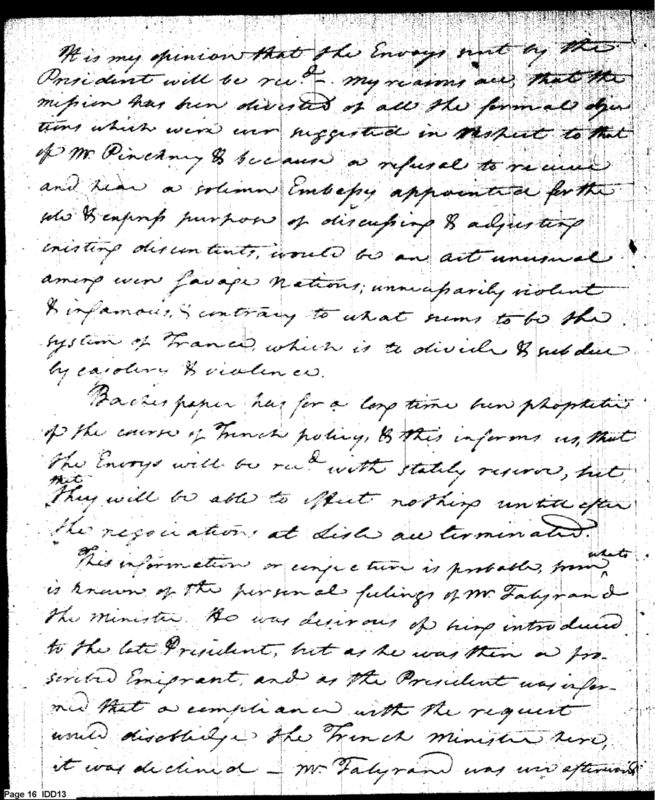 It is my opinion that the Envoys sent by the
President will be recd— my reasons are, that the
mission has been divested of all the formal objec
tions which were ever suggested in respect to that
of Mr. Pinckney & because a refusal to receive
and hear a solemn Embassy appointed for the
sole & express purpose of discussing & adjusting
existing discontents, would be an act unusual
among even savage Nations; unnecessarily violent
& infamous, & contrary to what seems to be the
system of France, which is to divide & subdue
by cajolery & violence.
Baches paper has for a long time been prophetic
of the course of French policy, & this informs us, that
the Envoys will be recd with stately reserve, but
that
they will be able to effect nothing untill after
the negociations at Lisle are terminated.
This information or conjecture is probable, from whats
is known of the personal feelings of Mr Talyrand
the Minister. He was desirous of being introduced
to the late President, but as he was then a pro-
scribed Emigrant, and as the President was infor-
med that a compliance with the request
would disoblidge the French Minister here,
it was declined — Mr Talyrand was ever afterwards
Page 16 IDD13